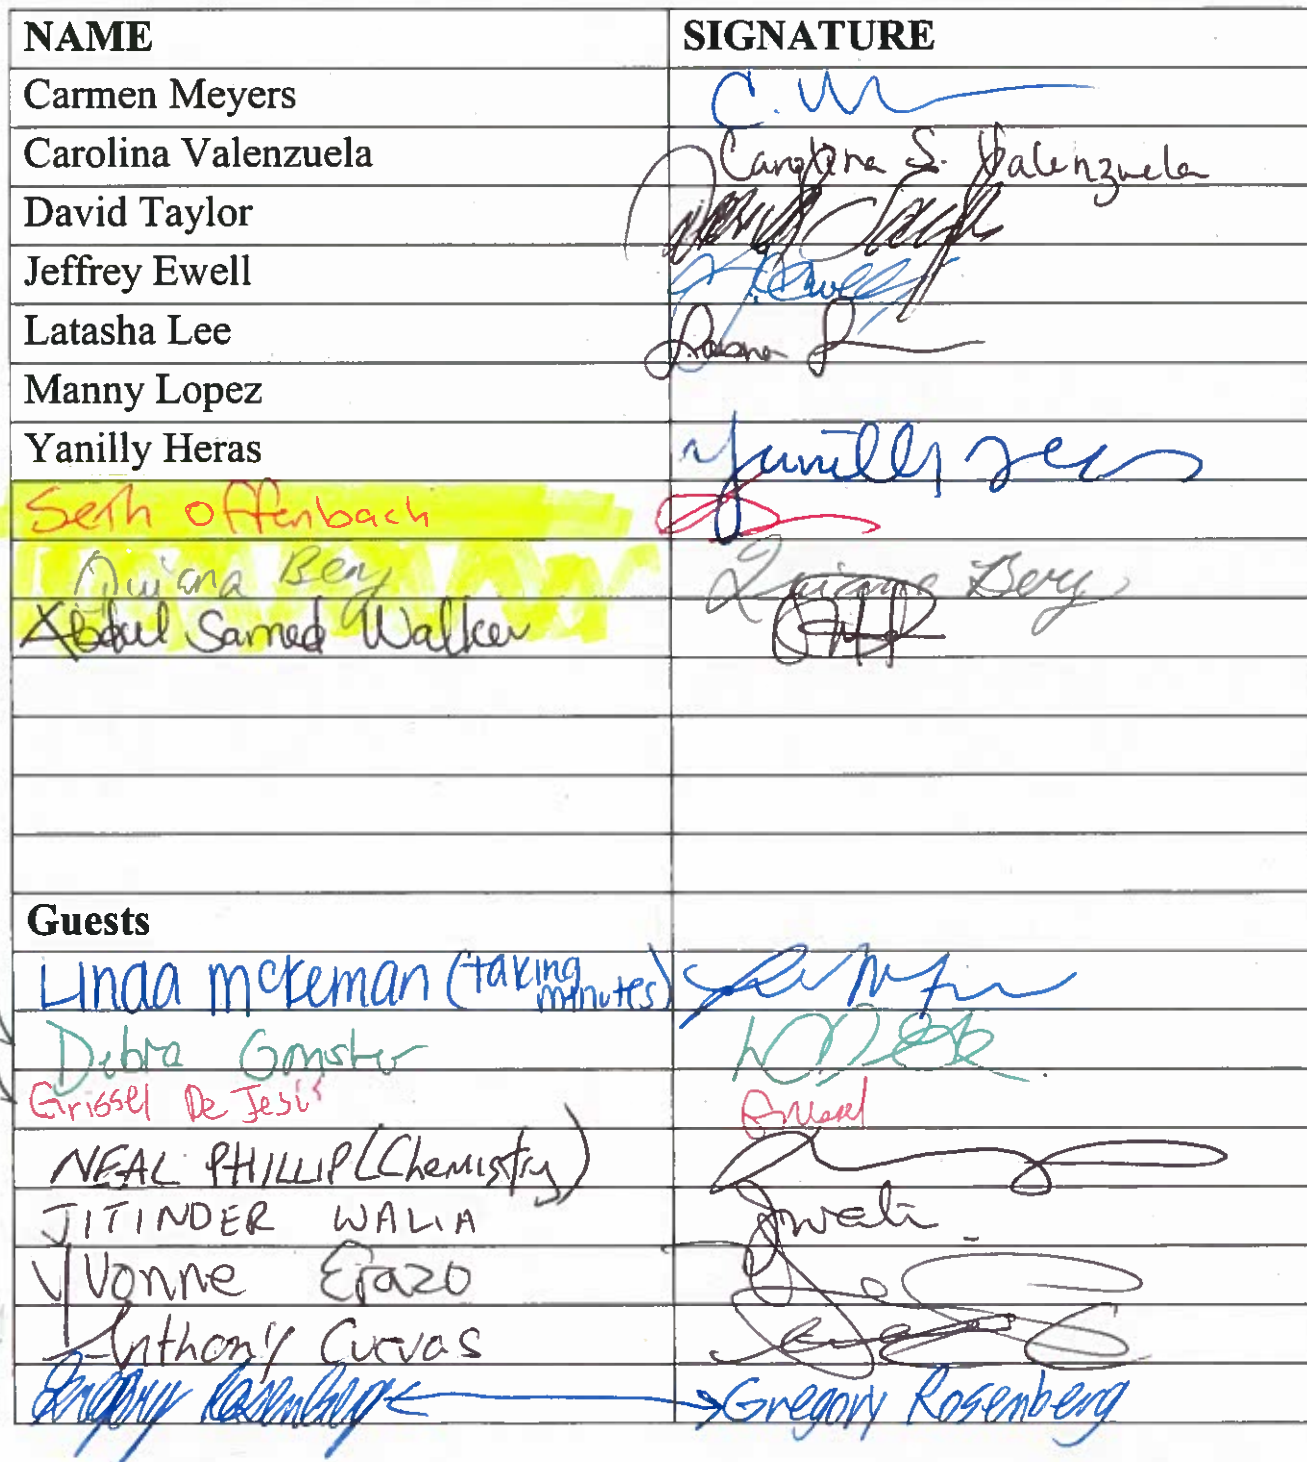 NAME SIGNATURE
Carmen Meyers C. M
Carolina Valenzuela Carolina S. Valenzuela
David Taylor
Jeffrey Ewell J. Ewell
Latasha Lee
Manny Lopez
Yanilly Heras Yanilly Heras
Seth Offenbach
Quiana Bery Quiana Bery
Abdul Samed Walker
Guests
Linda McKernan (taking minutes)
Debra Gonsher
Grissel De Jesús Grissel
NEAL PHILLIP (Chemistry)
JITINDER WALIA JWalia
Yvonne Erazo
Anthony Cuevas
Gregory Rosenberg Gregory Rosenberg